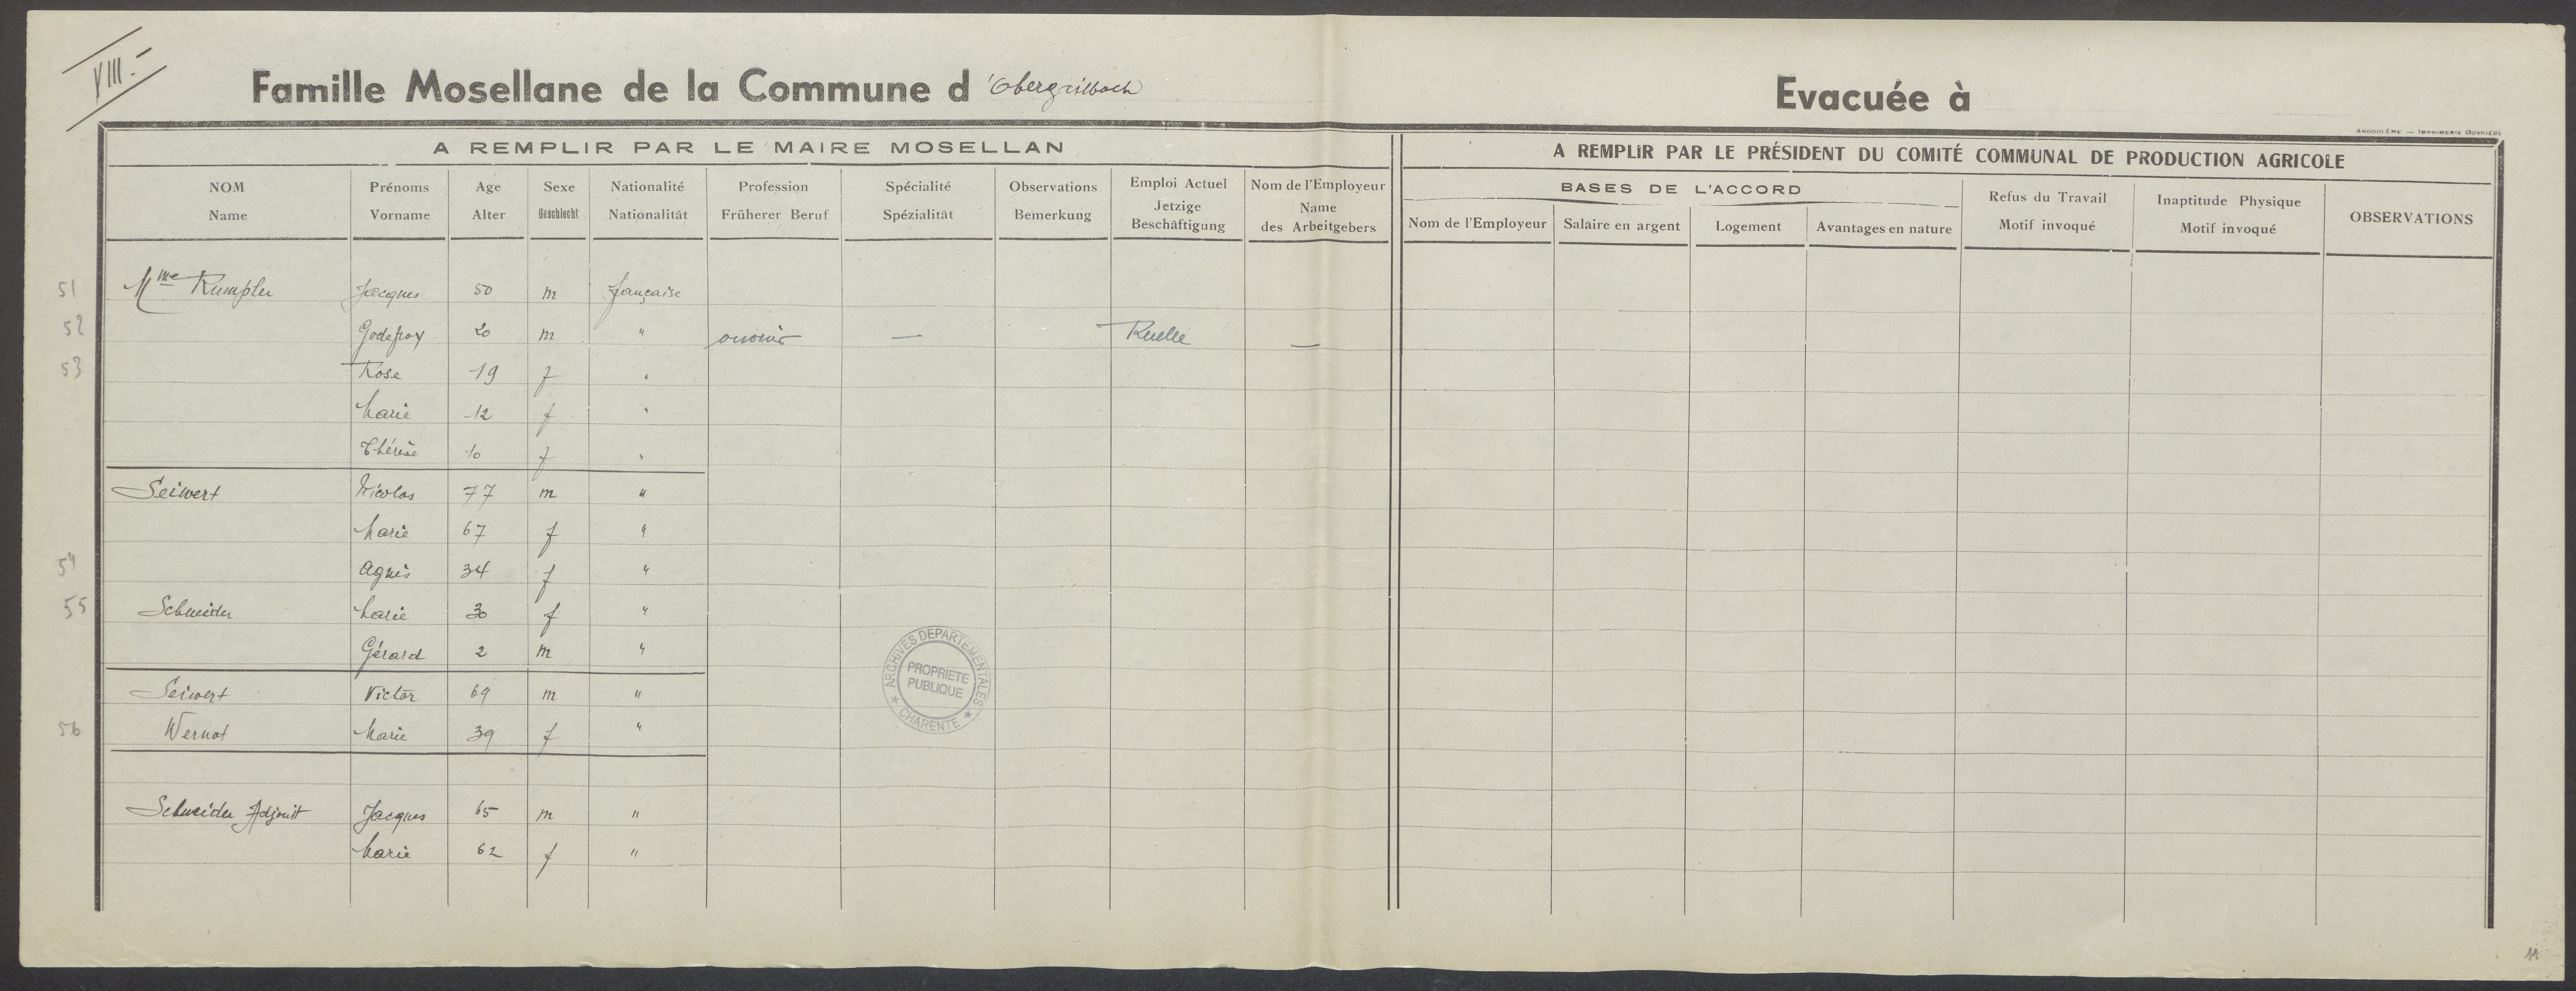 VIII.-
Famille Mosellane de la Commune d 'Obergailbach
Evacuée à
ANGOULÊME — IMPRIMERIE OUVRIÈRE
A REMPLIR PAR LE MAIRE MOSELLAN
A REMPLIR PAR LE PRÉSIDENT DU COMITÉ COMMUNAL DE PRODUCTION AGRICOLE
NOM Prénoms Age Sexe Nationalité Profession Spécialité Observations Emploi Actuel Nom de l'Employeur
Name Vorname Alter Geschlecht Nationalität Früherer Beruf Spézialität Bemerkung Jetzige Beschäftigung Name des Arbeitgebers
BASES DE L'ACCORD
Nom de l'Employeur Salaire en argent Logement Avantages en nature
Refus du Travail
Motif invoqué
Inaptitude Physique
Motif invoqué
OBSERVATIONS
51 Mme Rumpler Jacques 50 m française
52 Godefroy 20 m " ouvrier — Ruelle —
53 Rose 19 f "
Marie 12 f "
Thérèse 10 f "
Seiwert Nicolas 77 m "
Marie 67 f "
54 Agnès 34 f "
55 Schneider Marie 30 f "
Gérard 2 m "
Seiwert Victor 69 m "
56 Wernot Marie 39 f "
Schneider Adjoint Jacques 65 m "
Marie 62 f "
ARCHIVES DEPARTEMENTALES
PROPRIETE
PUBLIQUE
★ CHARENTE ★
11